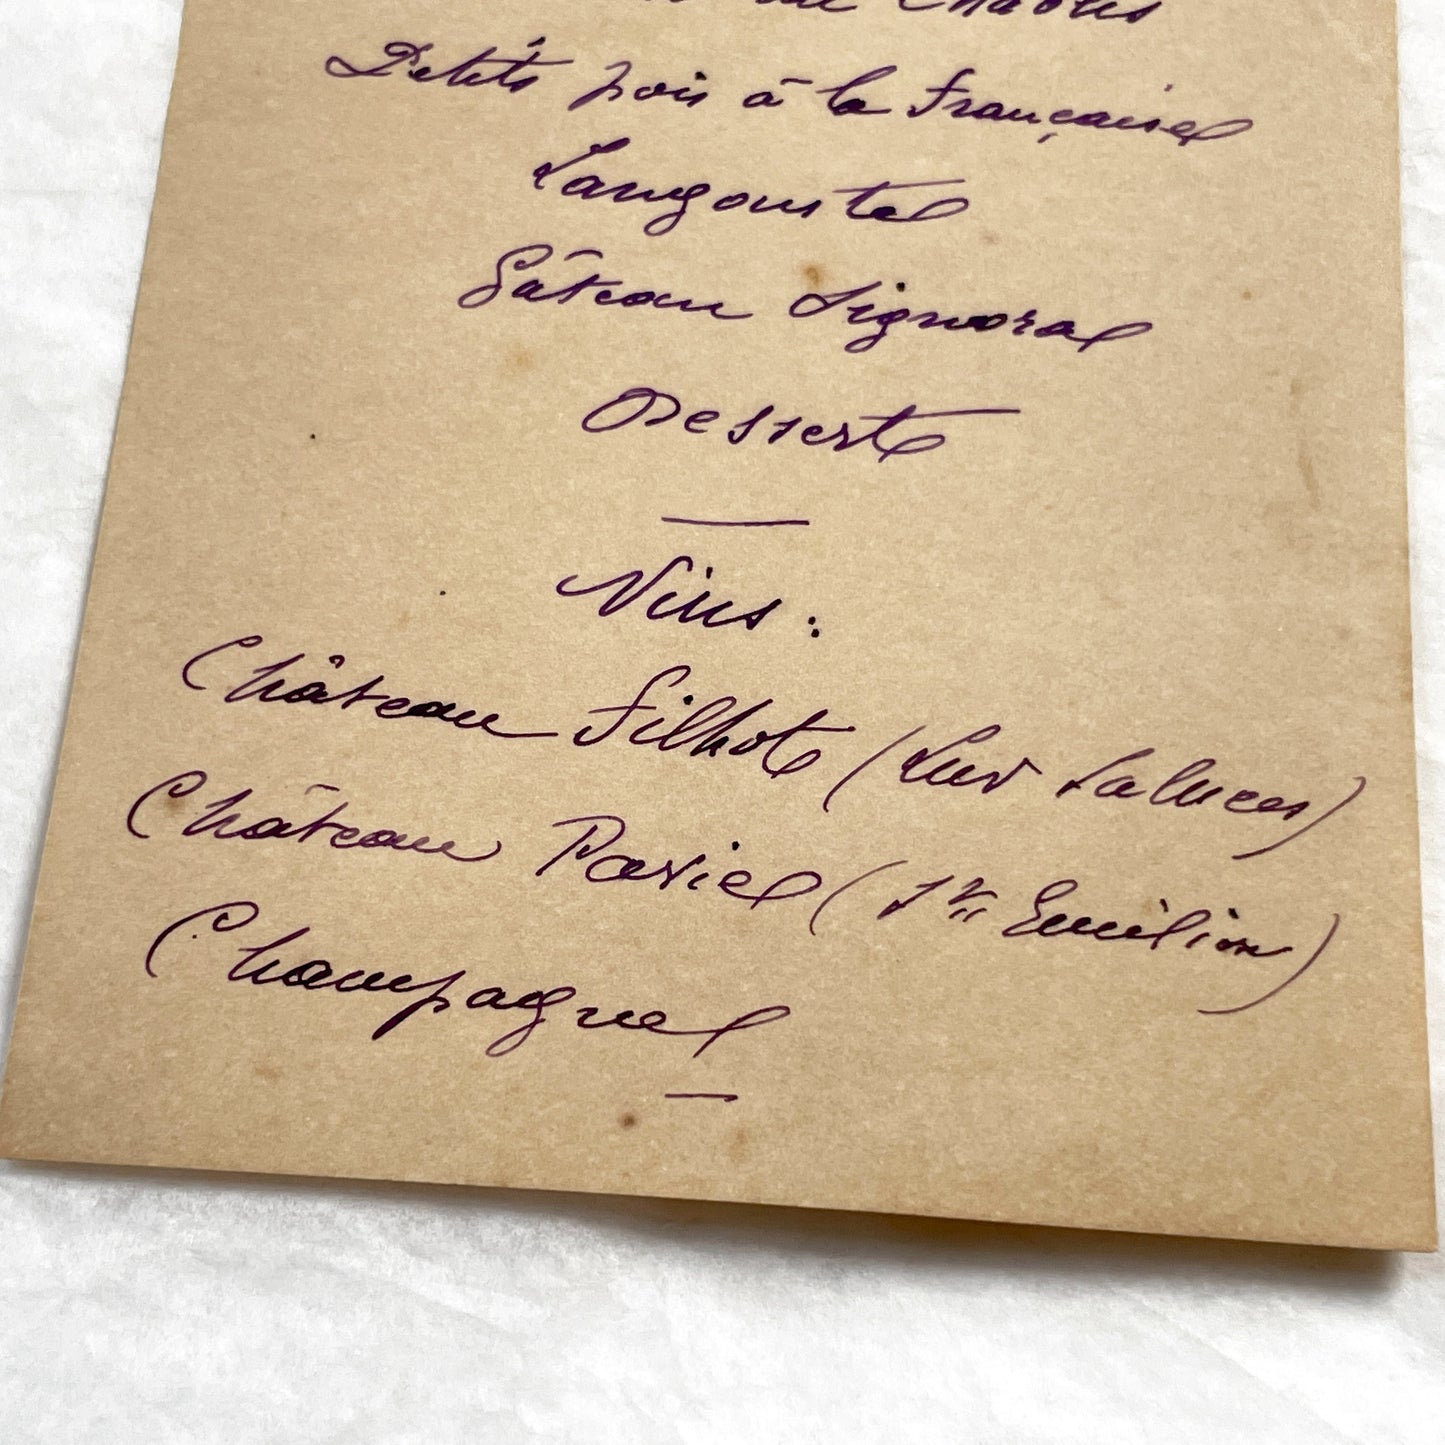 Petits pois à la Française
Langouste
Gâteau Signoral
Desserts
Vins :
Château Filhot (Lur Saluces)
Château Pavie (St Emilion)
Champagne